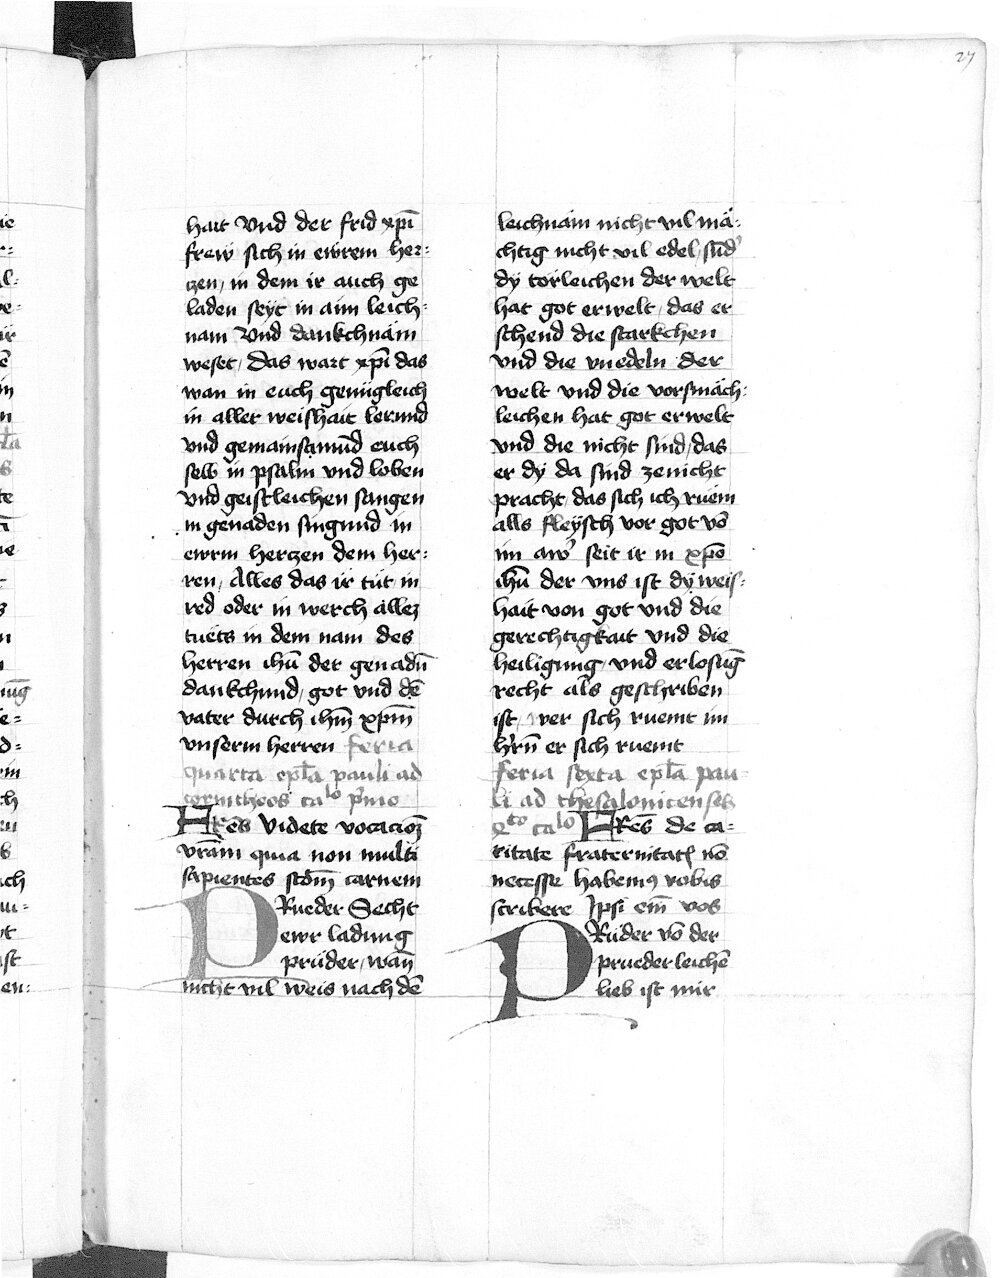 27
hait vnd der frid xp̄i
frew sich in ewrem her:
czen, in dem ir auch ge
laden seyt in aim leich:
nam Vnd dankchnäm
weset, Das wart xp̄i das
wan in euch genügleich
in aller weishait lerund
vnd gemainsamūd euch
selb in psalm vnd loben
vnd geistleichen sangen
in genaden singund in
ewrm herczen dem her:
ren, Alles das ir tüt in
red oder in werch allez
tuets in dem nam des
herren ihū der genadn̄
dankchund, got vnd dē
vater durch ihm̄ xpm̄
vnserm herren feria
quarta ep̄la pauli ad
corintheos ca^lo p̄mo
FRēs Videte vocacioꝫ
vr̄am quia non multi
sapientes scdm̄ carnem
PRueder Secht
ewr ladung
prüder, wan̄
nicht vil weis nach dē
leichnam nicht vil mä:
chtig nicht vil edel, sūd'
dy törleichen der welt
hat got erwelt, das er
schend die starkchen
vnd die vnedeln der
welt vnd die vorsmäch:
leichen hat got erwelt
vnd die nicht sind, das
er dy da sind zenicht
pracht, das sich ich ruem
alls fleysch vor got vō
im aw' seit ir in xp̄o
ihū der vns ist dy weis:
hait von got vnd die
gerechtigkait vnd die
heiligung, vnd erlosūg
recht als geschriben
ist, wer sich ruemt im
hr̄n er sich ruemt
feria sexta ep̄la pau
li ad thesalonicenses
q^to ca^lo FRēs de ca:
ritate fraternitatꝭ nō
necesse habemꝰ vobis
scribere Ipsi em̄ vos
PRüder vō der
pruederleichē
lieb ist mir